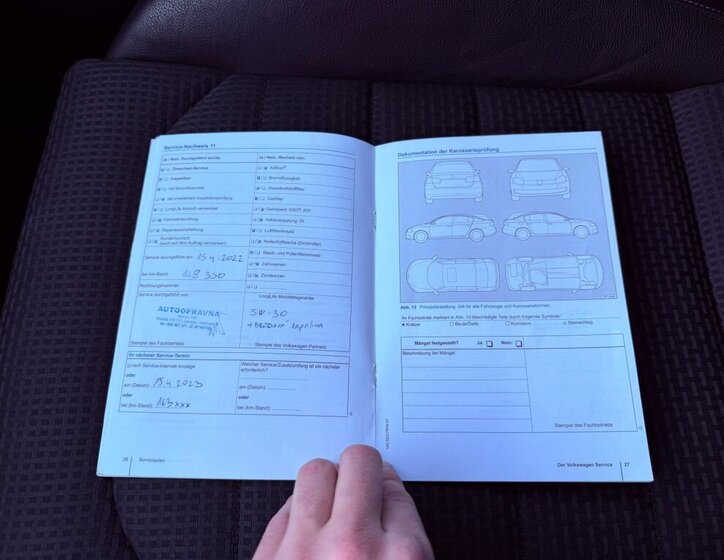 Service-Nachweis 11
Ja / Nein, Durchgeführt wurde:
Ölwechsel-Service
Inspektion
mit Motorölwechsel
mit erweitertem Inspektionsumfang
LongLife Motoröl verwendet
Karosserieprüfung
Reparaturempfehlung
Kundenwunsch
(auch auf dem Auftrag vermerken)
Service durchgeführt am: 15.4.2022
bei km-Stand: 128 330
Rechnungsnummer:
Service durchgeführt von:
AUTOOPRAVNA
Stempel des Fachbetriebs
Ja / Nein, Wechsel von:
AdBlue®
Bremsflüssigkeit
Dieselkraftstofffilter
Gasfilter
Getriebeöl: DSG®, ATF
Haldexkupplung, Öl
Luftfiltereinsatz
Reifenfüllflasche (Dichtmittel)
Staub- und Pollenfiltereinsatz
Zahnriemen
Zündkerzen
LongLife Mobilitätsgarantie:
5W-30
Stempel des Volkswagen Partners
Ihr nächster Service-Termin
nach Service-Intervall-Anzeige
oder
am (Datum): 15.4.2023
oder
bei (km-Stand): 163xxx
Welcher Service/Zusatzumfang ist als nächster
erforderlich?
am (Datum):
oder
bei (km-Stand):
26 Serviceplan
Dokumentation der Karosserieprüfung
Abb. 13 Prinzipdarstellung. Gilt für alle Fahrzeuge und Karosserieformen.
Ihr Fachbetrieb markiert in Abb. 13 beschädigte Teile durch folgende Symbole:
Kratzer Beule/Delle Korrosion Steinschlag
Mängel festgestellt? Ja: Nein:
Beschreibung der Mängel:
Stempel des Fachbetriebs
Der Volkswagen Service 27